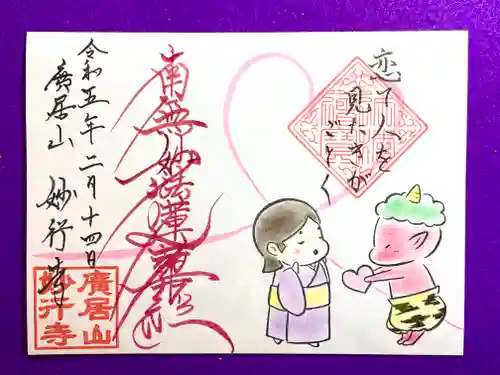 恋て人を
見たきが
ごとく
南無妙法蓮華経
令和五年二月十四日
廣居山 妙行寺
廣居山
妙行寺